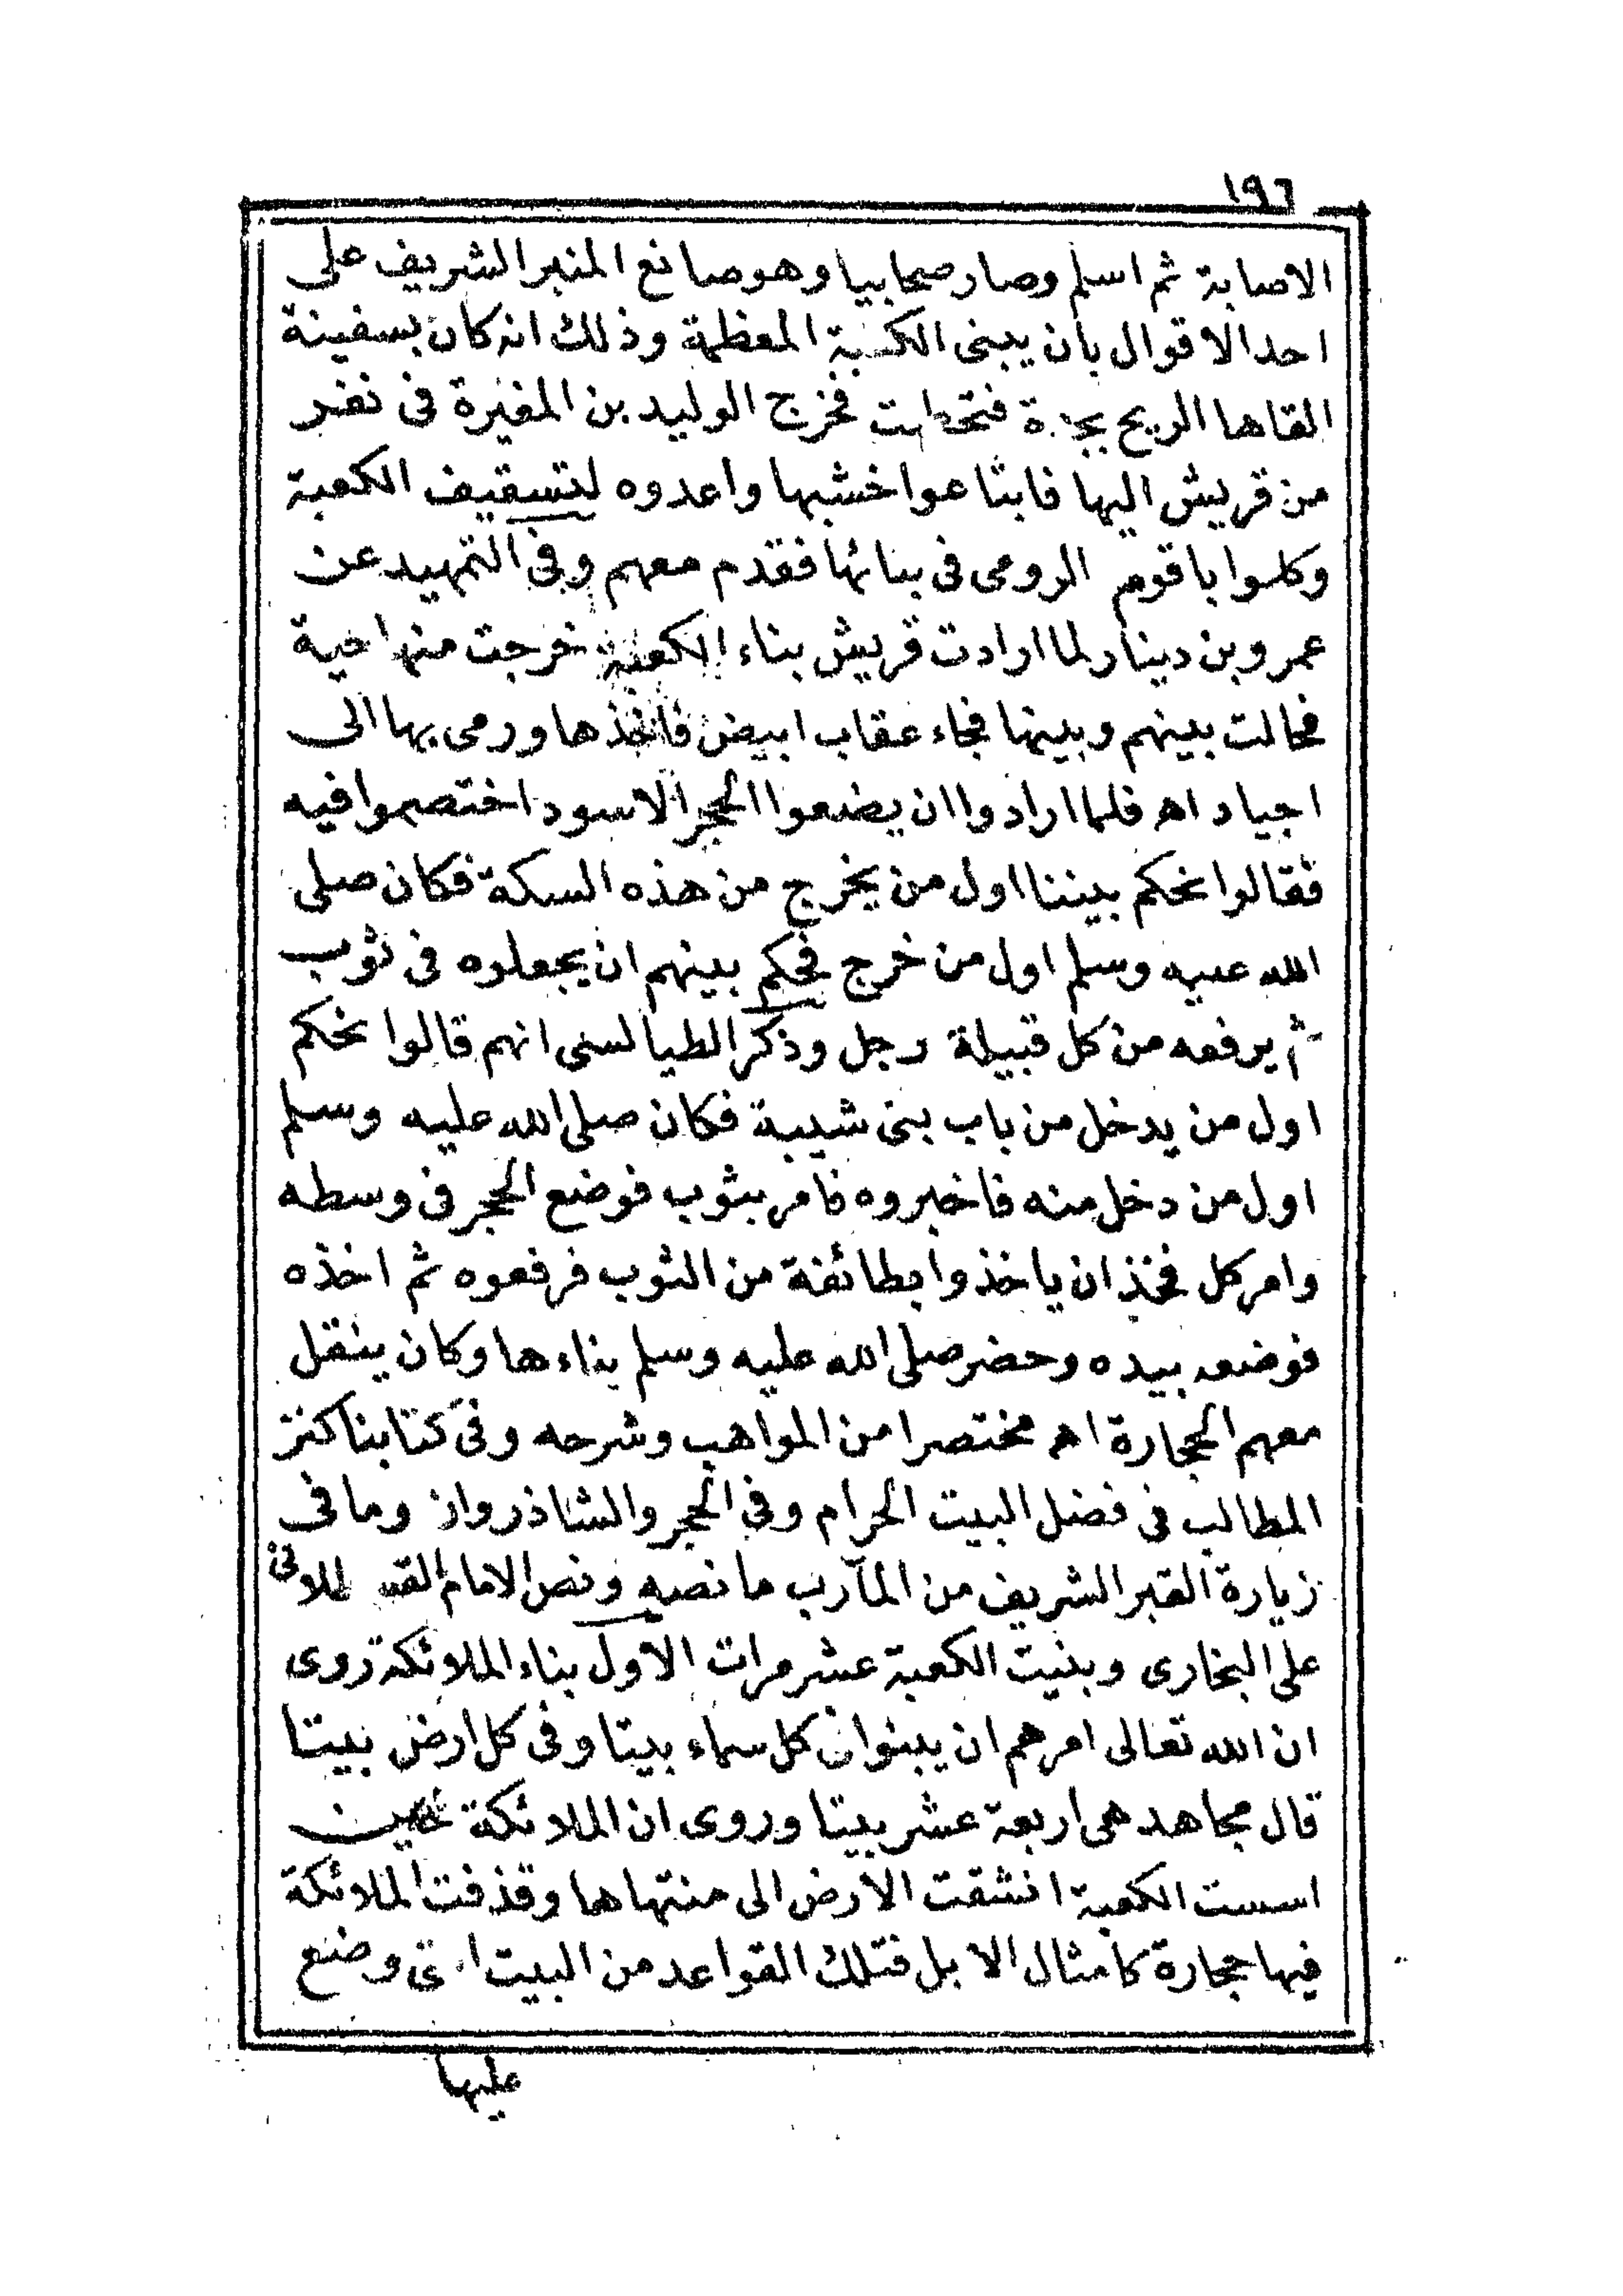 ١٩٦
الاصابة ثم اسلم وصار صحابيا وهو صانع المنبر الشريف على
احد الاقوال بان يبنى الكعبة المعظمة وذلك انه كان بسفينة
القاها الريح بجدة فتحطمت فخرج الوليد بن المغيرة فى نفر
من قريش اليها فابتاعوا خشبها واعدوه لتسقيف الكعبة
وكلموا باقوم الرومى فى بنائها فقدم معهم وفى التمهيد عن
عمرو بن دينار لما ارادت قريش بناء الكعبة خرجت منها حية
فحالت بينهم وبينها فجاء عقاب ابيض فاخذها ورمى بها الى
اجياد اه فلما ارادوا ان يضعوا الحجر الاسود اختصموا فيه
فقالوا نحكم بيننا اول من يخرج من هذه السكة فكان صلى
الله عليه وسلم اول من خرج فحكم بينهم ان يجعلوه فى ثوب
ثم يرفعه من كل قبيلة رجل وذكر الطيالسى انهم قالوا نحكم
اول من يدخل من باب بنى شيبة فكان صلى الله عليه وسلم
اول من دخل منه فاخبروه فامر بثوب فوضع الحجر فى وسطه
وامر كل فخذ ان ياخذوا بطائفة من الثوب فرفعوه ثم اخذه
فوضعه بيده وحضر صلى الله عليه وسلم بناءها وكان ينقل
معهم الحجارة اه مختصرا من المواهب وشرحه وفى كتابنا كنز
المطالب فى فضل البيت الحرام وفى الحجر والشاذروان وما فى
زيارة القبر الشريف من المآرب ما نصه ونص الامام القسطلانى
على البخارى وبنيت الكعبة عشر مرات الاول بناء الملائكة روى
ان الله تعالى امرهم ان يبنوا فى كل سماء بيتا وفى كل ارض بيتا
قال مجاهد هى اربعة عشر بيتا وروى ان الملائكة حين
اسست الكعبة انشقت الارض الى منتهاها وقذفت الملائكة
فيها حجارة كامثال الابل فتلك القواعد من البيت التى وضع
عليها